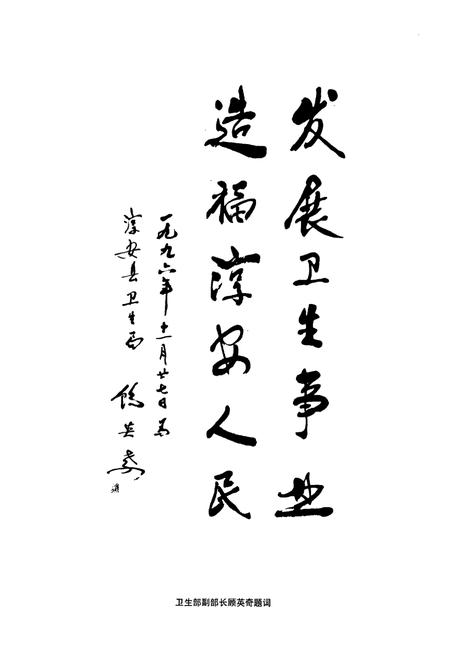 发展卫生事业
造福淳安人民
一九九六年十一月廿七日为
淳安县卫生局 顾英奇
卫生部副部长顾英奇题词